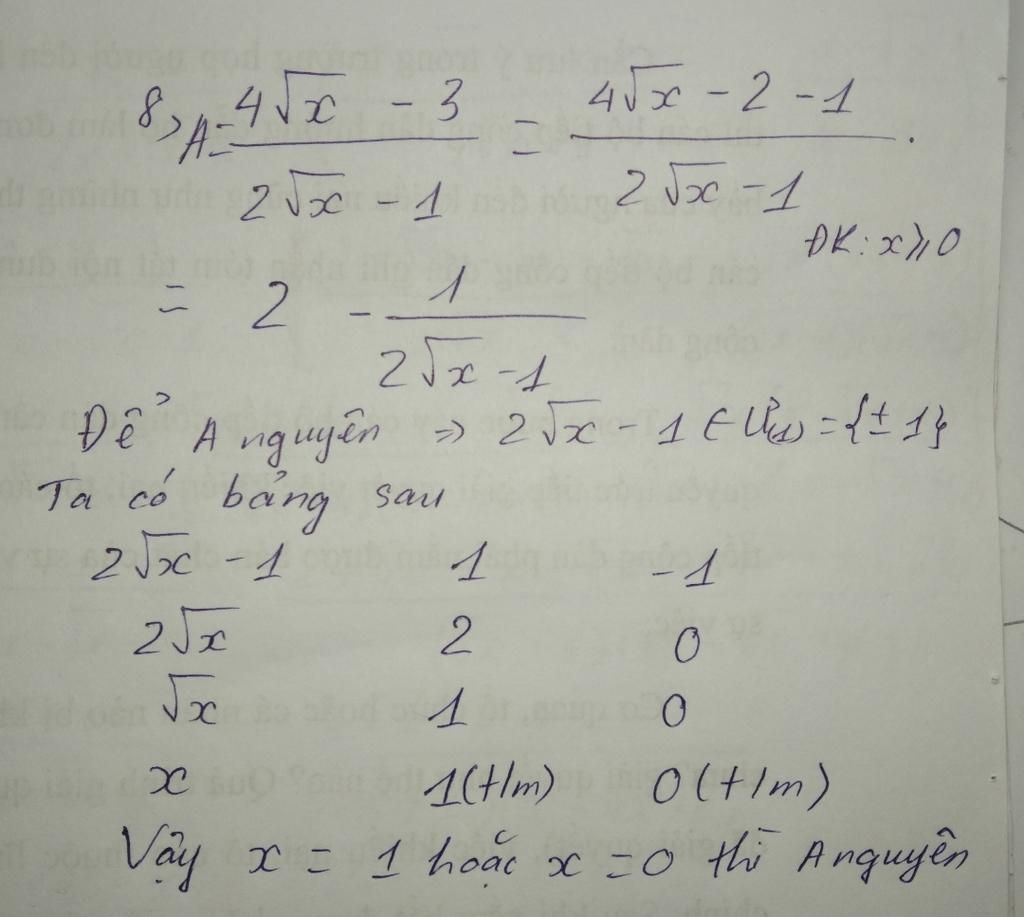 8> A = (4√x - 3)/(2√x - 1) = (4√x - 2 - 1)/(2√x - 1).
ĐK: x ⩾ 0
= 2 - 1/(2√x - 1)
Để A nguyên => 2√x - 1 ∈ Ư(1) = {± 1}
Ta có bảng sau
2√x - 1 1 -1
2√x 2 0
√x 1 0
x 1 (t/m) 0 (t/m)
Vậy x = 1 hoặc x = 0 thì A nguyên